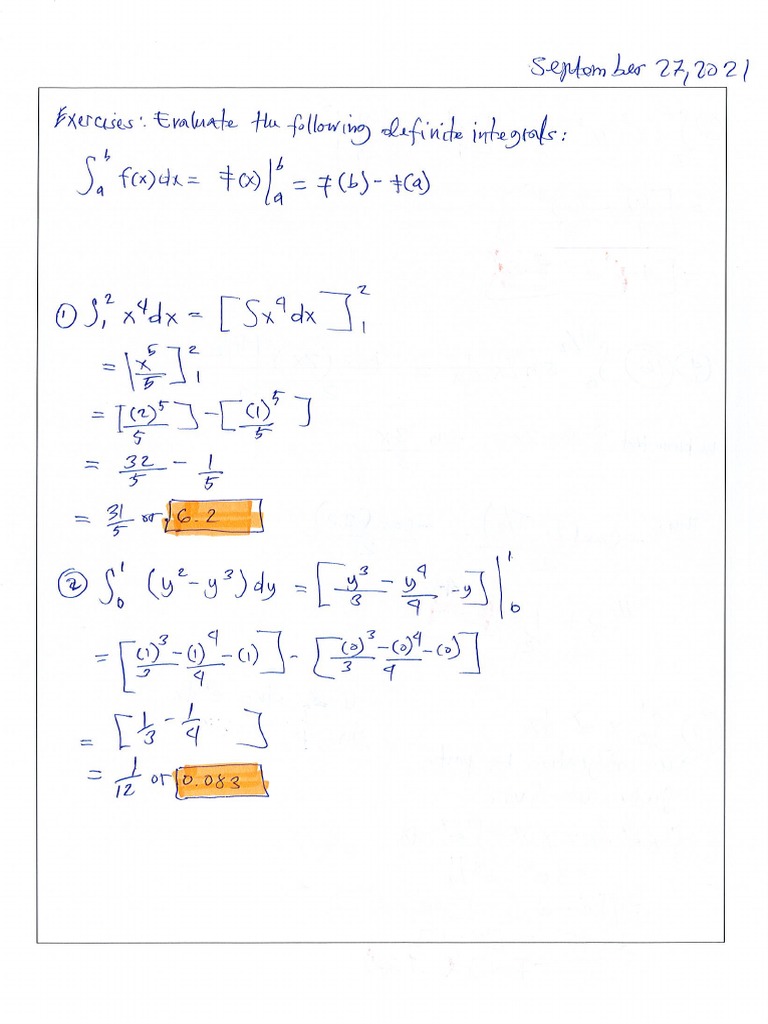 September 27, 2021
Exercises: Evaluate the following definite integrals:
∫ₐᵇ f(x)dx = F(x)|ₐᵇ = F(b) - F(a)
① ∫₁² x⁴dx = [∫x⁴dx]₁²
= [x⁵/5]₁²
= [(2)⁵/5] - [(1)⁵/5]
= 32/5 - 1/5
= 31/5 or 6.2
② ∫₀¹ (y² - y³)dy = [y³/3 - y⁴/4 - y]|₀¹
= [(1)³/3 - (1)⁴/4 - (1)] - [(0)³/3 - (0)⁴/4 - (0)]
= [1/3 - 1/4]
= 1/12 or 0.083